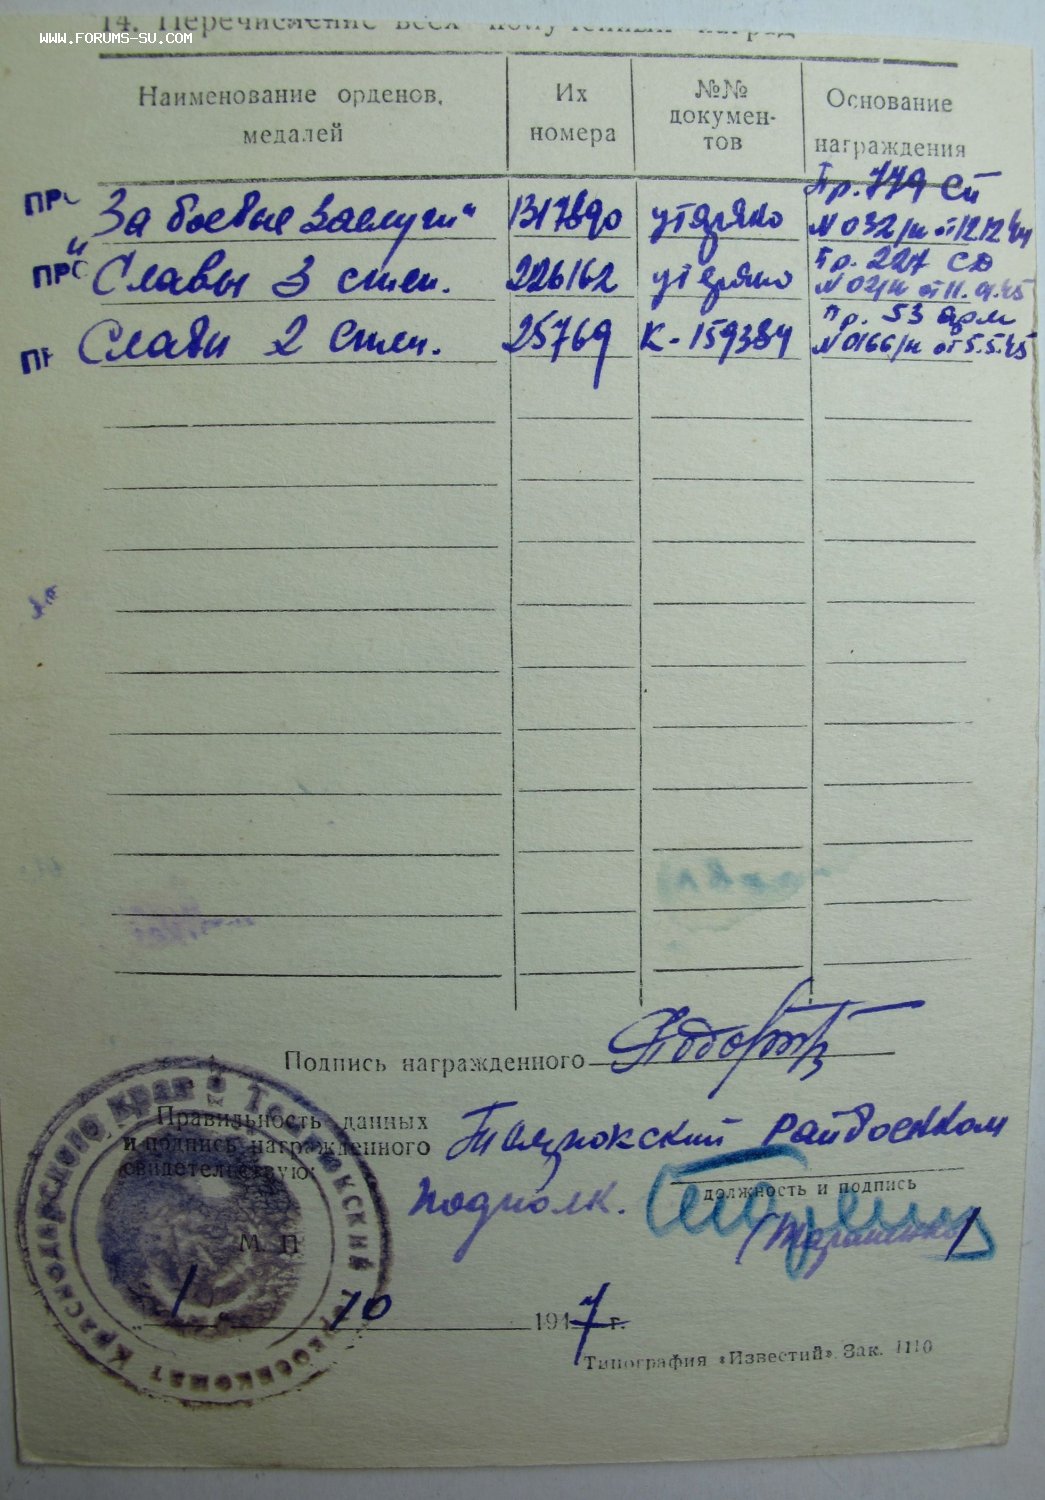 14. Перечисление всех полученных наград
WWW.FORUMS-SU.COM
Наименование орденов, медалей
Их номера
№№ документов
Основание награждения
„За боевые заслуги“ 1317890 утеряно Пр. 779 СП № 032/н от 12.12.44
Славы 3 степ. 226162 утеряно Пр. 227 СД № 02/н от 11.4.45
Славы 2 степ. 25769 К-159384 Пр. 53 арм № 0166/н от 5.5.45
Подпись награжденного
Правильность данных
и подпись награжденного
свидетельствую:
райвоенком
должность и подпись
подполк.
М. П
1 10 1947 г.
Типография «Известий». Зак. 1110
Краснодарского края